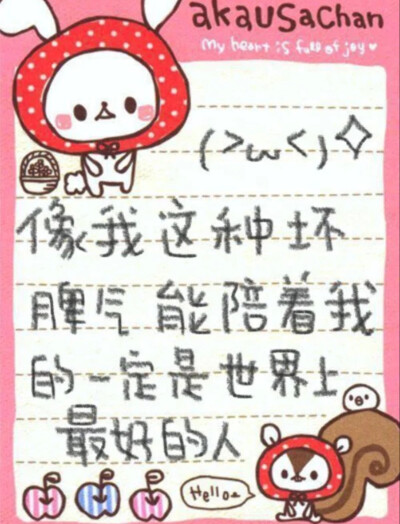 akausachan
My heart is full of joy
(>ω<)✧
像我这种坏
脾气能陪着我
的一定是世界上
最好的人
Hello